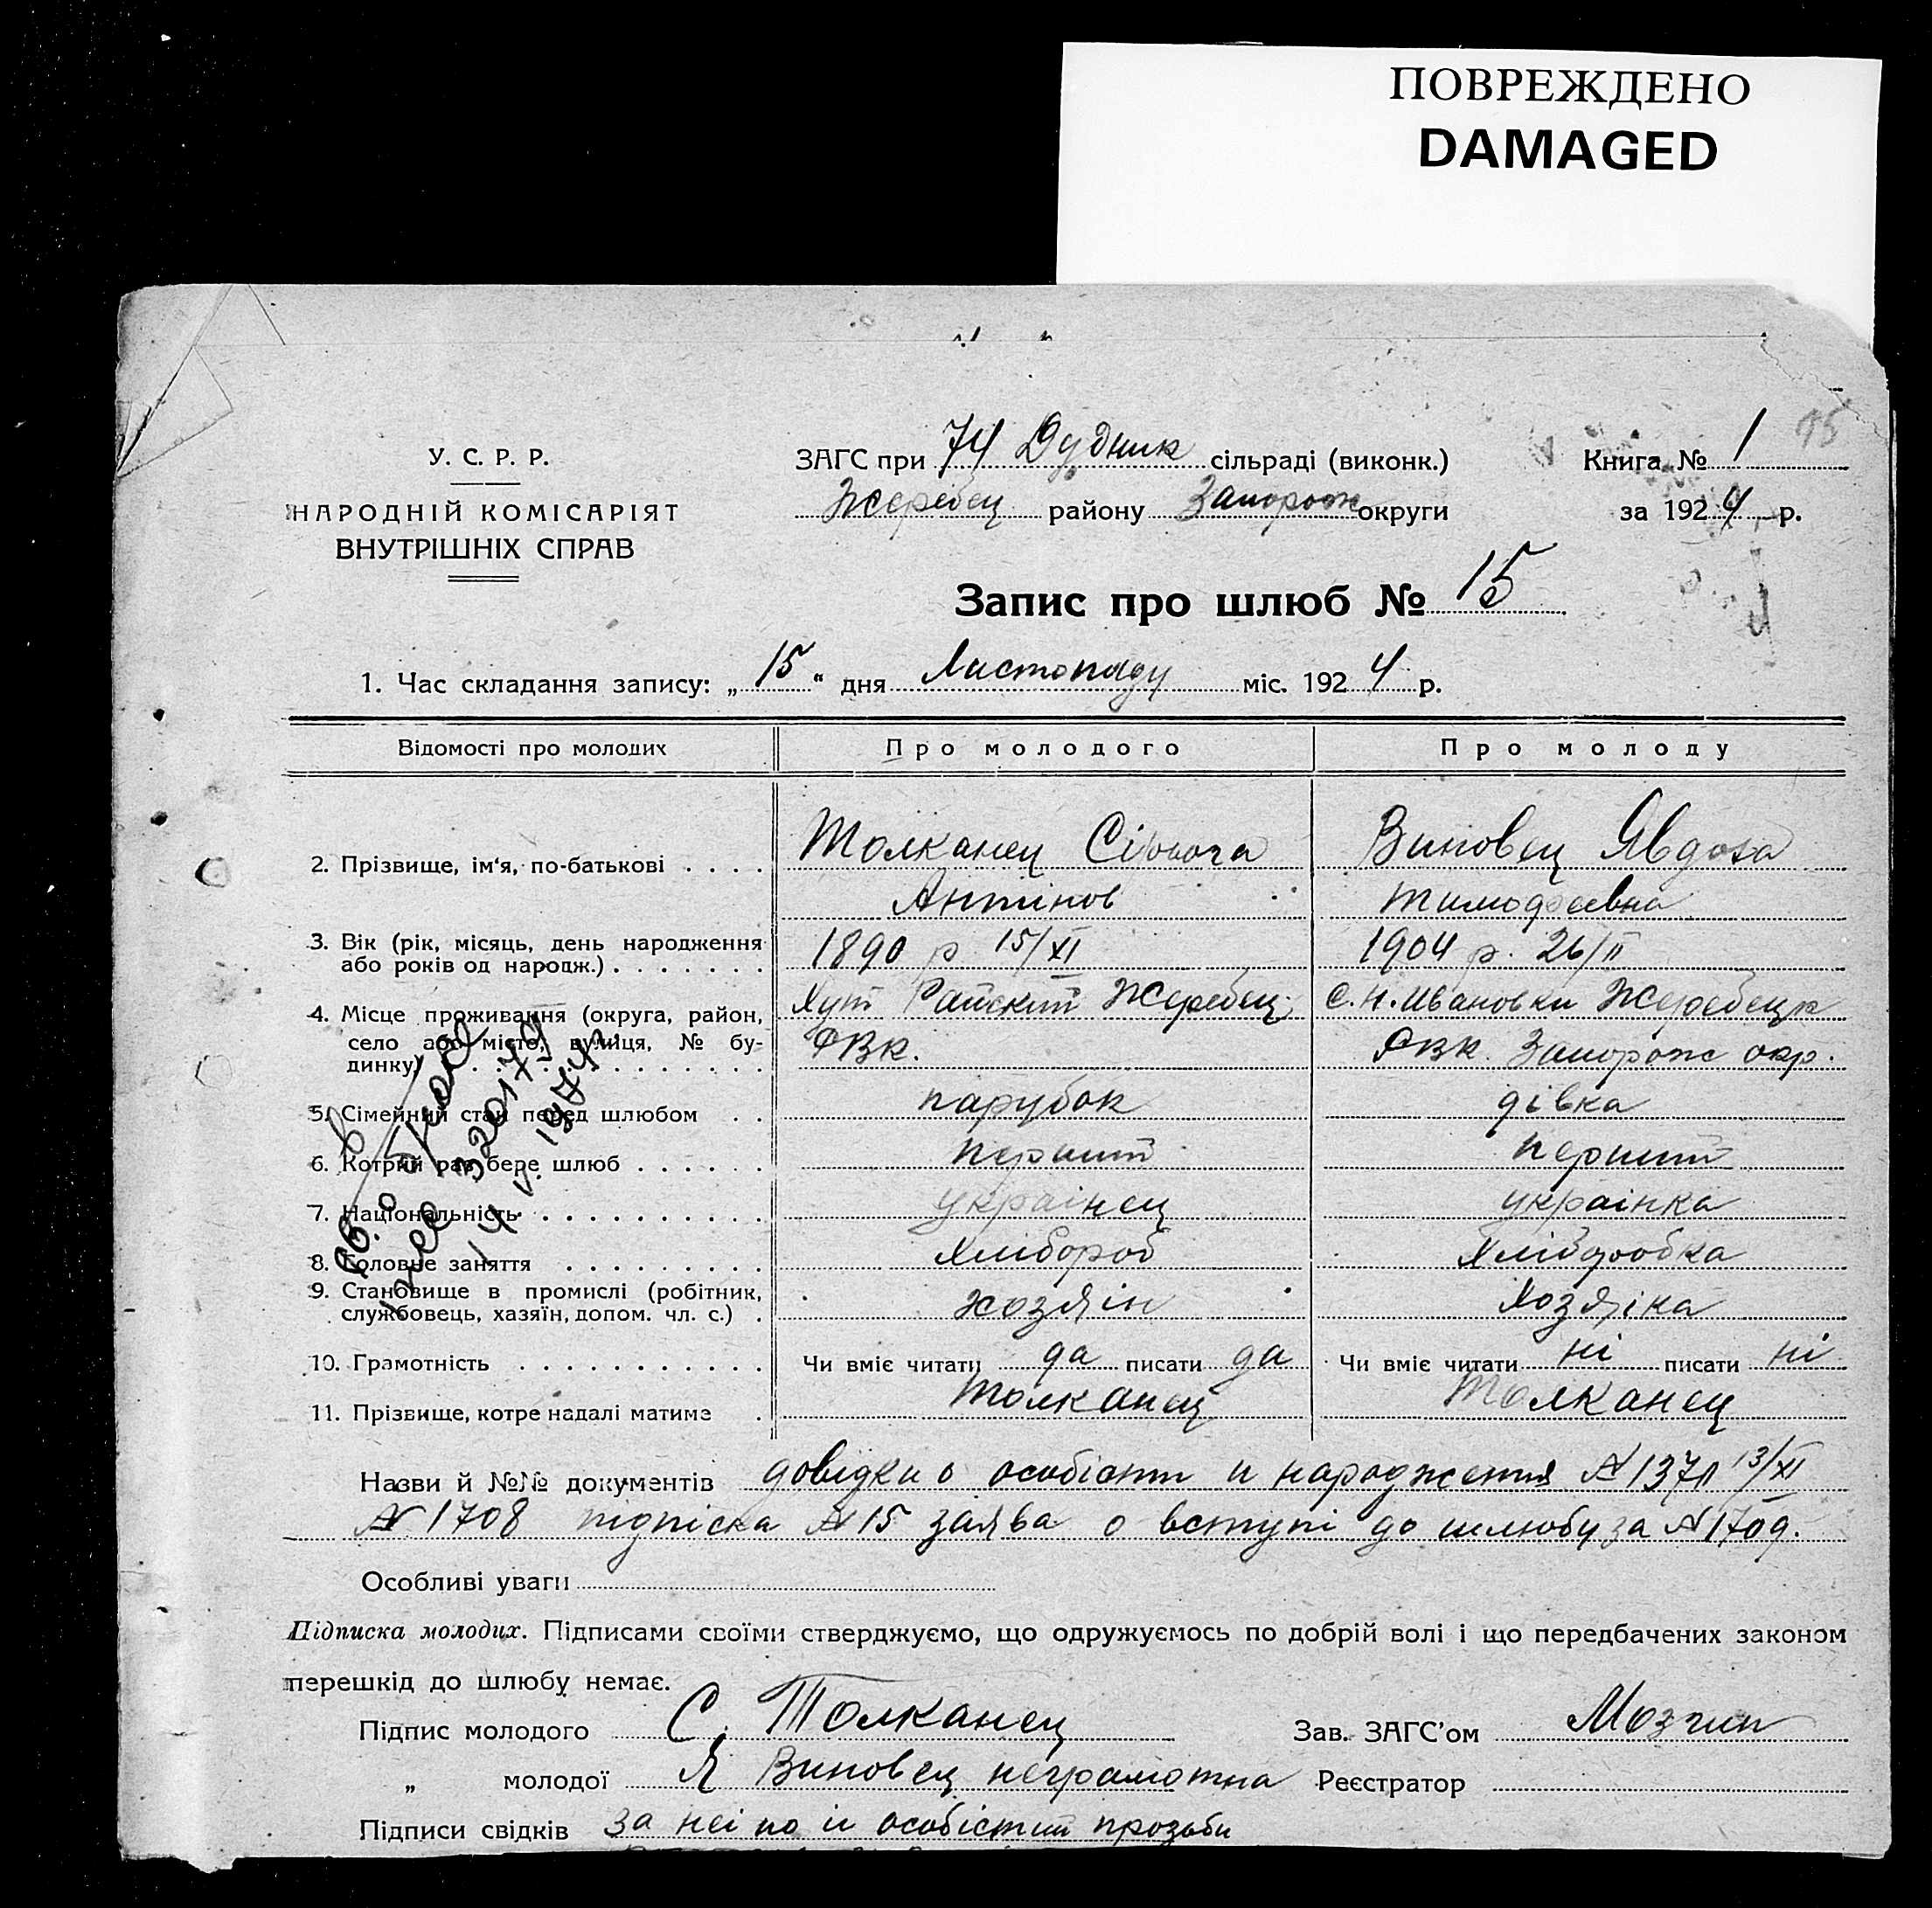 ПОВРЕЖДЕНО
DAMAGED
У. С. Р. Р.
НАРОДНІЙ КОМІСАРІЯТ
ВНУТРІШНІХ СПРАВ
ЗАГС при 74 Дудник сільраді (виконк.)
Жеребец району Запорож округи
Книга № 1
75
за 1924 р.
Запис про шлюб № 15
1. Час складання запису: „15“ дня Листопаду міс. 1924 р.
Відомості про молодих Про молодого Про молоду
2. Прізвище, ім'я, по-батькові . . . . Толканец Виновец Явдоха
Антінов Тимофеевна
3. Вік (рік, місяць, день народження або років од народж.) . . . . . . . 1890 р 15/XI 1904 р. 26/II
4. Місце проживання (округа, район, село або місто, вулиця, № будинку) . . . Хут Райский Жеребец. РВк. с. Н. Ивановки Жеребецк РВК. Запорож окр.
5. Сімейний стан перед шлюбом . . парубок дівка
6. Котрий раз бере шлюб . . . . . . перший перший
7. Національність . . . . . . . . . . українец українка
8. Головне заняття . . . . . . . . . хлібороб хліборобка
9. Становище в промислі (робітник, службовець, хазяїн, допом. чл. с.) . хозяін хозяіка
10. Грамотність . . . . . . . . . . . Чи вміє читати да писати да Чи вміє читати ні писати ні
11. Прізвище, котре надалі матиме . Толканец Толканец
14 V. 1974
Назви й №№ документів довідки о особісти и народження № 1371 13/XI
№ 1708 підпіска № 15 заява о вступі до шлюбу за № 1709.
Особливі уваги
Підписка молодих. Підписами своїми стверджуємо, що одружуємось по добрій волі і що передбачених законом
перешкід до шлюбу немає.
Підпис молодого С. Толканец Зав. ЗАГС'ом
„ молодої Я Виновец неграмотна Реєстратор
Підписи свідків за неі по іі особістий прозьби